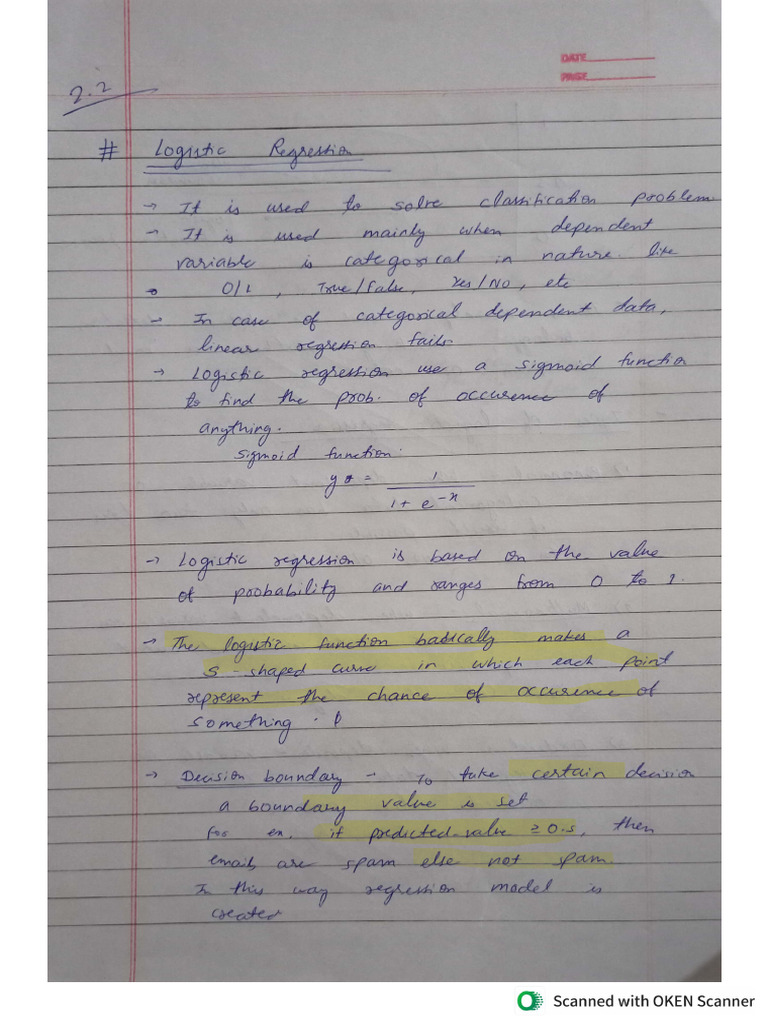 DATE
PAGE
2.2
# Logistic Regression
→ It is used to solve classification problem
→ It is used mainly when dependent
variable is categorical in nature. like
0/1, True/False, Yes/No, etc
→ In case of categorical dependent data,
linear regression fails
→ Logistic regression use a sigmoid function
to find the prob. of occurence of
anything.
sigmoid function:
y = 1 / 1 + e^-x
→ Logistic regression is based on the value
of probability and ranges from 0 to 1.
→ The logistic function basically makes a
S-shaped curve in which each point
represent the chance of occurence of
something.
→ Decision boundary → To take certain decision
a boundary value is set
for ex. if predicted value ≥ 0.5, then
email are spam else not spam.
In this way regression model is
created
Scanned with OKEN Scanner